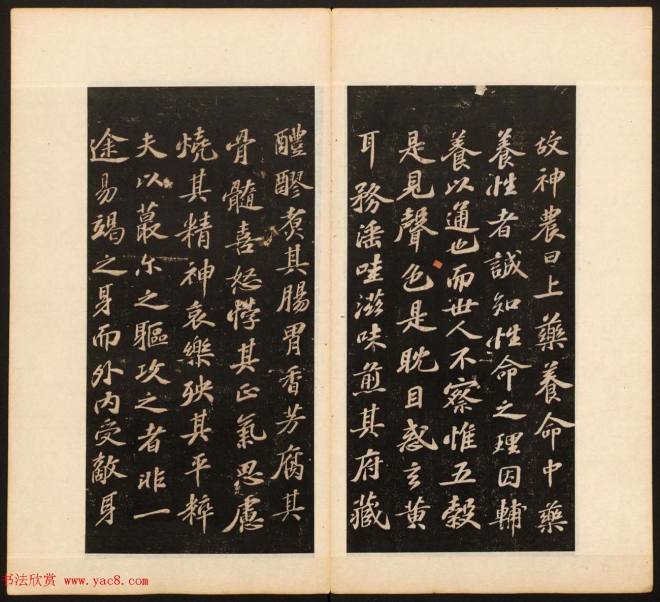 故神農曰上藥養命中藥
養性者誠知性命之理因輔
養以通也而世人不察惟五穀
是見聲色是耽目惑玄黄
耳務滛哇滋味煎其府藏
醴醪煑其腸胃香芳腐其
骨髓喜怒悖其正氣思慮
燒其精神哀樂殃其平粹
夫以蕞尒之軀攻之者非一
途易竭之身而外内受敵身
书法欣赏 www.yac8.com